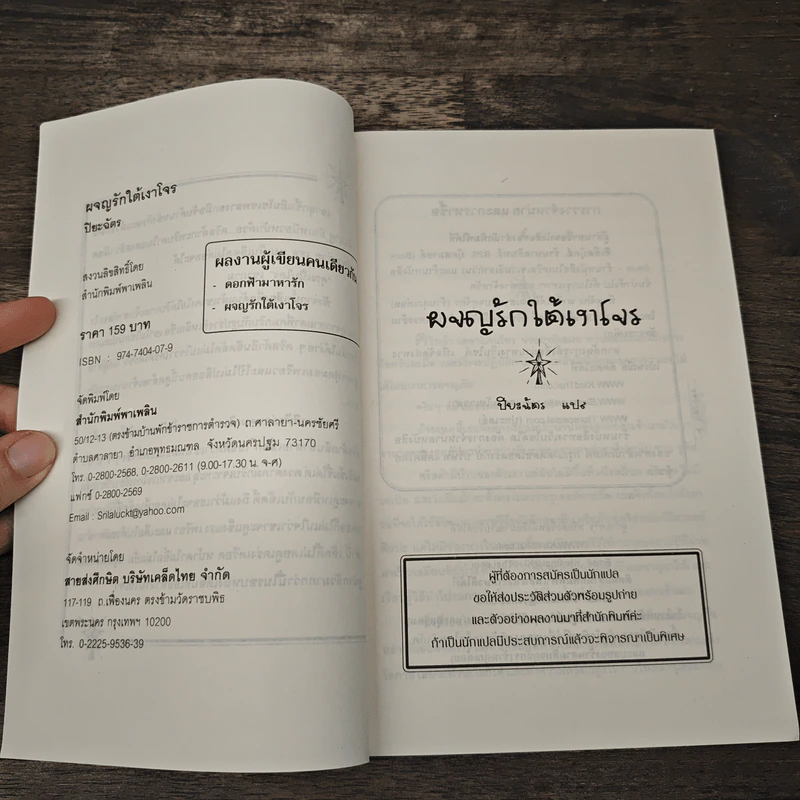 ผจญรักใต้เงาโจร
ปิยะฉัตร
สงวนลิขสิทธิ์โดย
สำนักพิมพ์พาเพลิน
ราคา 159 บาท
ISBN : 974-7404-07-9
ผลงานผู้เขียนคนเดียวกัน
- ดอกฟ้ามาหารัก
- ผจญรักใต้เงาโจร
จัดพิมพ์โดย
สำนักพิมพ์พาเพลิน
50/12-13 (ตรงข้ามบ้านพักข้าราชการตำรวจ) ถ.ศาลายา-นครชัยศรี
ตำบลศาลายา อำเภอพุทธมณฑล จังหวัดนครปฐม 73170
โทร. 0-2800-2568, 0-2800-2611 (9.00-17.30 น. จ-ศ)
แฟกซ์ 0-2800-2569
Email : Srilaluckt@yahoo.com
จัดจำหน่ายโดย
สายส่งศึกษิต บริษัทเคล็ดไทย จำกัด
117-119 ถ.เฟื่องนคร ตรงข้ามวัดราชบพิธ
เขตพระนคร กรุงเทพฯ 10200
โทร. 0-2225-9536-39
ผจญรักใต้เงาโจร
ปิยะฉัตร แปล
ผู้ที่ต้องการสมัครเป็นนักแปล
ขอให้ส่งประวัติส่วนตัวพร้อมรูปถ่าย
และตัวอย่างผลงานมาที่สำนักพิมพ์ค่ะ
ถ้าเป็นนักแปลมีประสบการณ์แล้วจะพิจารณาเป็นพิเศษ